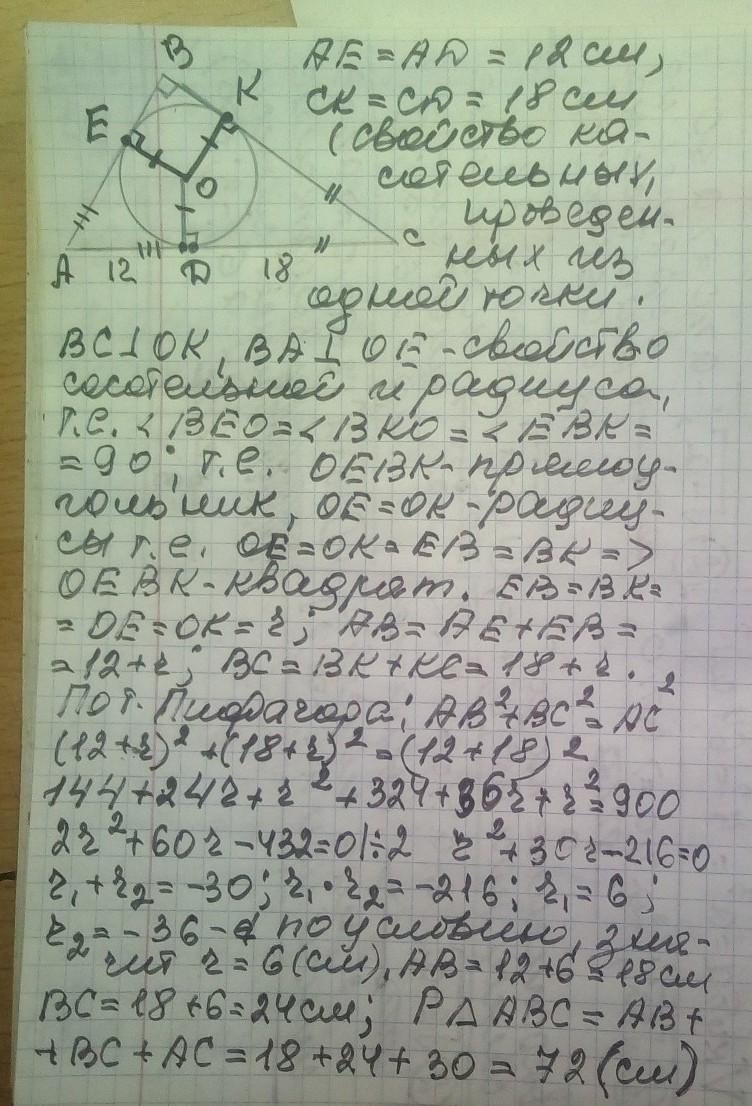 B
K
E
O
A 12 D 18 C
AE = AD = 12 см,
CK = CD = 18 см
(свойство ка-
сательных,
проведен-
ных из
одной точки.
BC⊥OK, BA⊥OE - свойство
сасательной и радиуса,
т.е. <BEO = <BKO = <EBK =
= 90°, т.е. OEBK - прямоу-
гольник, OE = OK - радиу-
сы т.е. OE = OK = EB = BK =>
OEBK - квадрат. EB = BK =
= OE = OK = r; AB = AE + EB =
= 12 + r; BC = BK + KC = 18 + r.
По т. Пифагора: AB² + BC² = AC²
(12 + r)² + (18 + r)² = (12 + 18)²
144 + 24r + r² + 324 + 36r + r² = 900
2r² + 60r - 432 = 0 |÷2 r² + 30r - 216 = 0
r₁ + r₂ = -30; r₁ · r₂ = -216; r₁ = 6;
r₂ = -36 - по условию, зна-
чит r = 6 (см), AB = 12 + 6 = 18 см
BC = 18 + 6 = 24 см; P△ABC = AB +
+ BC + AC = 18 + 24 + 30 = 72 (см)